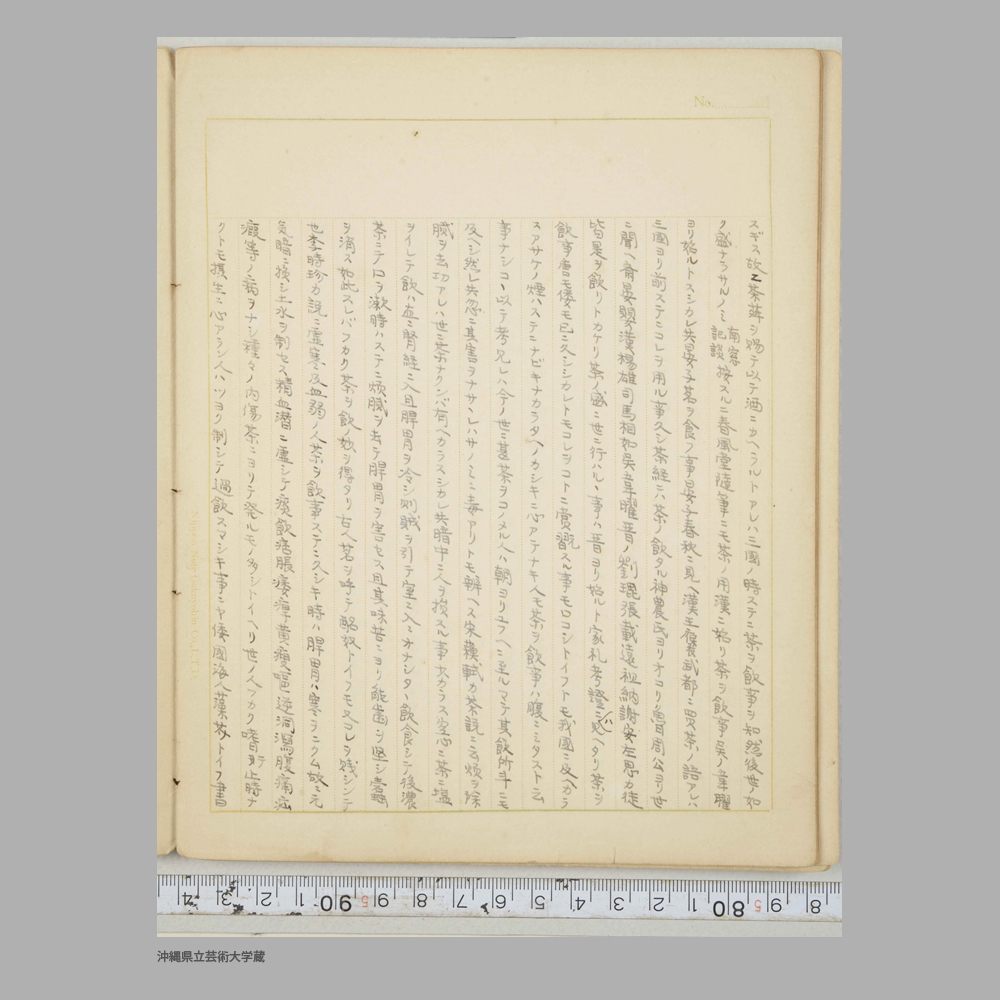 No.
スギス故ニ茶荈ヲ賜テ以テ酒ニカヘラルトアレハ三國ノ時ステニ茶ヲ飲事ヲ知然後世ノ如
ク盛ナラサルノミ 南窓記談 按スルニ春風堂隨筆ニモ茶ノ用漢ニ始リ茶ヲ飲事呉ノ韋曜
ヨリ始ルトスシカレ共晏子茗ヲ食フ事晏子春秋ニ見ヘ漢王褒武都ニ買茶ノ語アレハ
三國ヨリ前ステニコレヲ用ル事久シ茶経ニハ茶ノ飲タル神農氏ヨリオコリ魯周公ヨリ世
ニ聞ヘ齊晏嬰漢楊雄司馬相如呉韋曜晋ノ劉琨張載遠祖納謝安左思カ徒
皆是ヲ飲リトカケリ茶ノ盛ニ世ニ行ハル丶事ハ晋ヨリ始ルト家礼考證ニ(バ)ヘタリ茶ヲ
飲事唐モ倭モ已ニ久シシカレトモコレヲコトニ賞翫スル事モロコシトイフトモ我國ニ及ヘカラ
スアサケノ煙ハステニナビキナカラタヘノカシキニ心アテナキ人モ茶ヲ飲事ハ腹ニミタスト云
事ナシコ丶以テ考見レハ今ノ世ニ甚茶ヲコノメル人ハ朝ヨリユフヘニ至ルマテ其飲所斗ニモ
及ヘシ然レ共忽ニ其害ヲナサ丶レハサノミニ毒アリトモ辨ヘス宋蘓軾カ茶説ニ云煩ヲ除
膩ヲ去功アレハ世ニ茶ナクンバ有ヘカラスシカレ共暗中ニ人ヲ損スル事少カラス空心ニ茶ニ塩
ヲイレテ飲ハ直ニ腎経ニ入且脾胃ヲ冷シ則賊ヲ引テ室ニ入ニオナシタ丶飲食シテ後濃
茶ニテ口ヲ漱時ハステニ煩膩ヲ去テ脾胃ヲ害セス且其味苦ニヨリ能歯ヲ堅シ蠧
ヲ消ス如此スレバフカク茶ヲ飲ノ妙ヲ得タリ古人茗ヲ呼テ酪奴トイフモ又コレヲ賎シンテ
也李時珍カ説ニ虚寒及血弱ノ人茶ヲ飲事ステニ久シキ時ハ脾胃ハ寒ヲニクム故ニ元
氣暗ニ損シ土水ヲ制セス精血潜ニ虚シテ痰飲痞脹痿痺黄瘦嘔逆洞瀉腹痛疝
瘕等ノ病ヲナシ種々ノ内傷茶ニヨリテ発ルモノ多シトイヘリ世ノ人フカク嗜テヨ止時ナ
クトモ摂生ニ心アラン人ハツヨク制シテ過飲スマシキ事ニヤ倭國海人藻芥トイフ書
8 9 5 80 1 2 3 4 5 6 7 8 9 5 90 1 2 3 4
沖縄県立芸術大学蔵